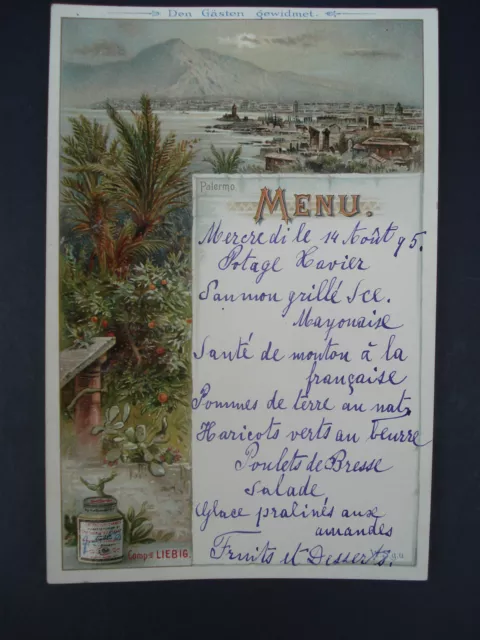 Den Gästen gewidmet.
Palermo.
MENU.
Mercredi le 14 Août 95.
Potage Xavier
Saumon grillé Sce.
Mayonaise
Santé de mouton à la
française
Pommes de terre au nat.
Haricots verts au beurre
Poulets de Bresse
Salade
Glace pralinés aux
amandes
Fruits et Desserts.
Comp.ie LIEBIG.